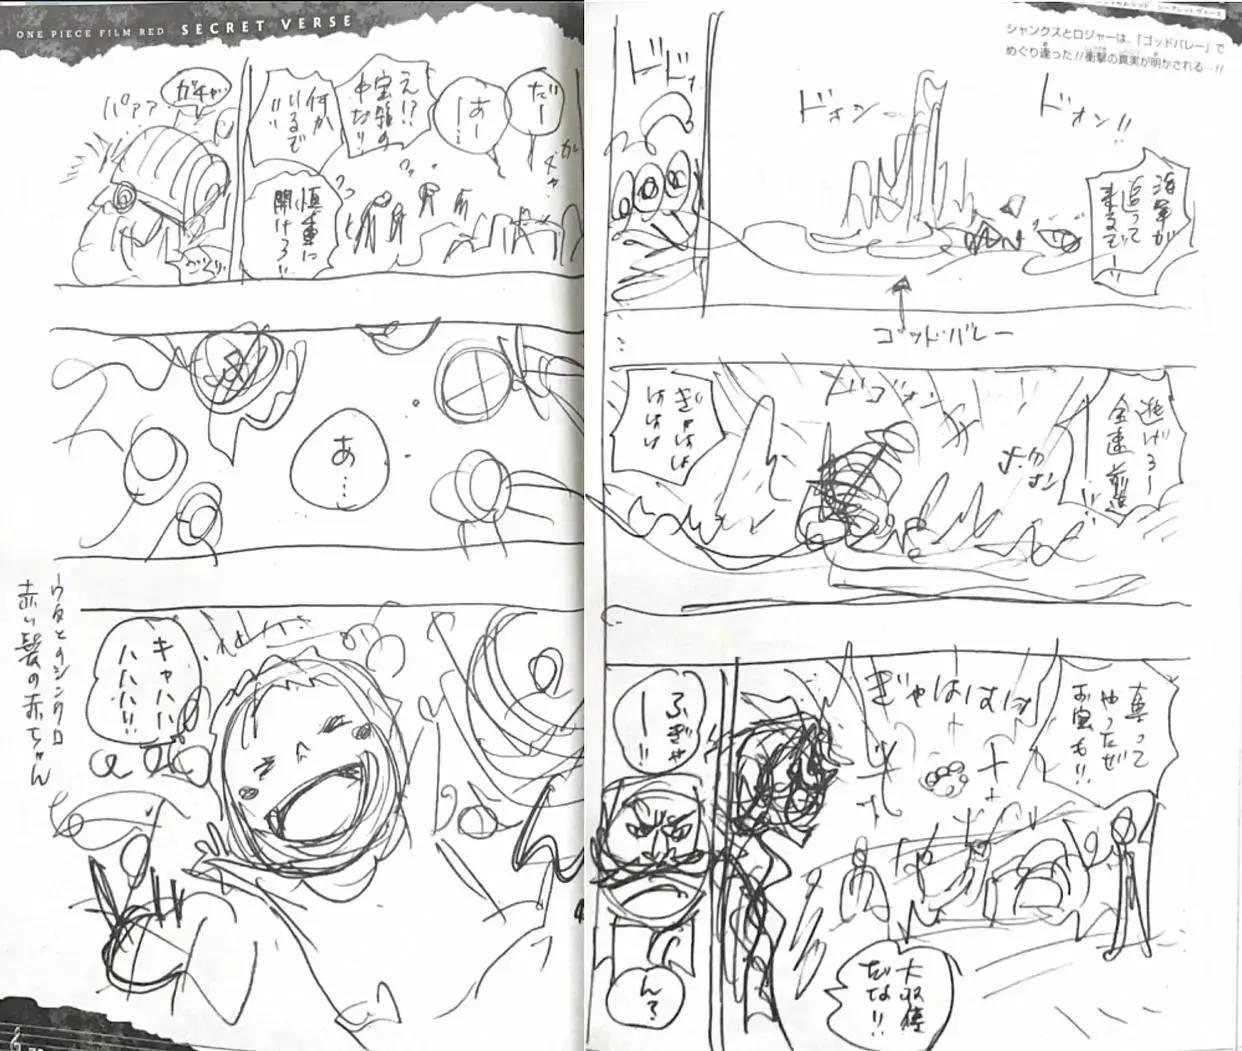 シャンクスとロジャーは、「ゴッドバレー」で
めぐり逢った!!衝撃の真実が明かされる…!!
ドォン!!
ドォン
海軍が
追って
来るぞ
ーー!!
ゴッドバレー
ドドォ
逃げろー
全速前進
ーー!!
ドゴォン
ぎゃはは
はははは
真って
やったぜ
お宝も!!
ぎゃはははっ
大収穫
だな!!
ふぎゃ
ー!!
ん?
ONE PIECE FILM RED SECRET VERSE
だー
あー
ー!
え!?
宝箱の
中だ!!
何か
いるぞ
!!
慎重に
開けろ!!
ガチャ
パァァ
あ…
キャハハ
ハハハ!!
ウタとのシンクロ
赤い髪の赤ちゃん